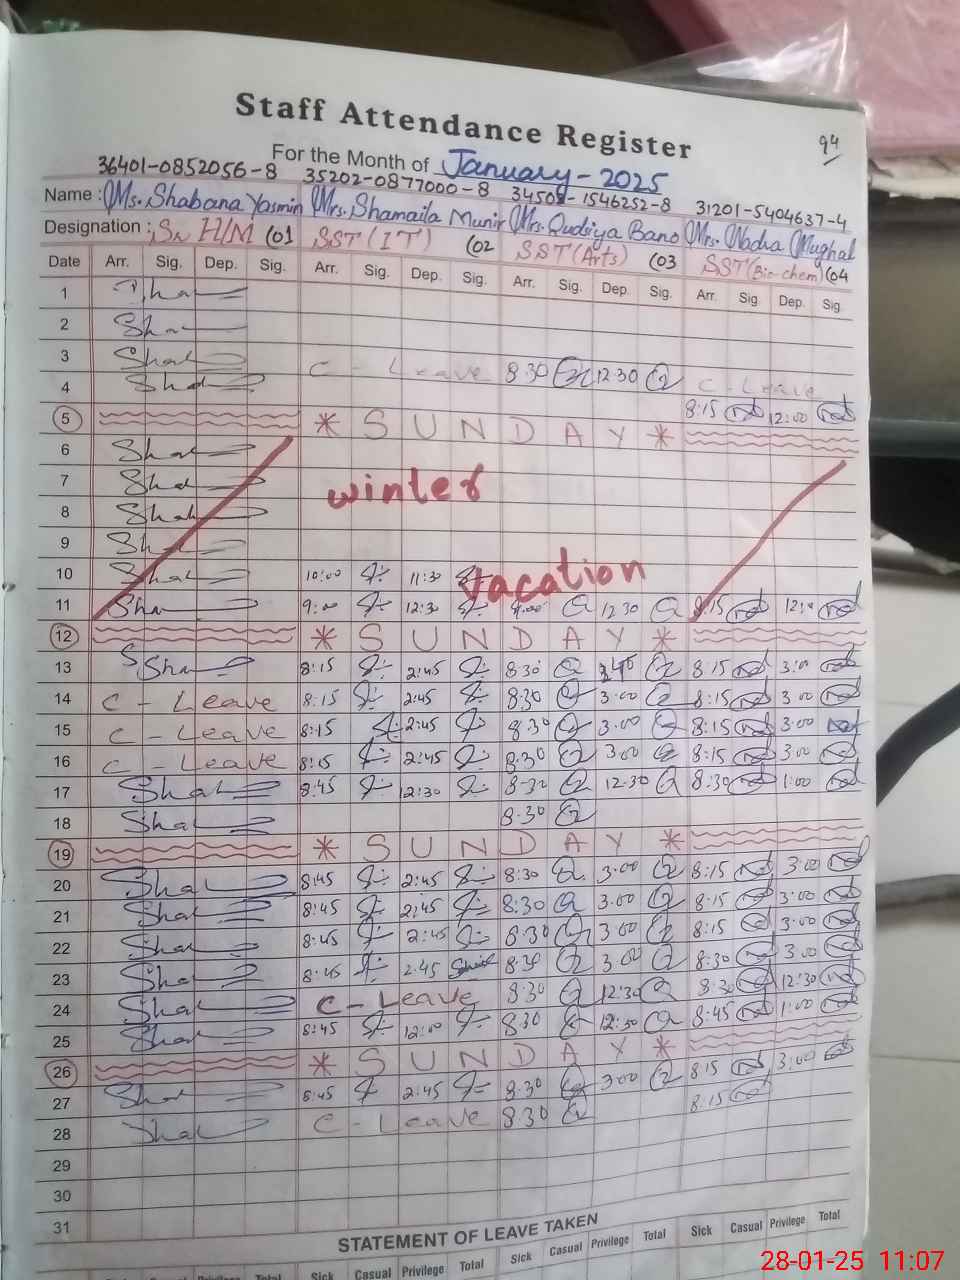 Staff Attendance Register
94
For the Month of January - 2025
36401-0852056-8 35202-0877000-8 34501-1546252-8 31201-5404637-4
Name : Ms. Shabana Yasmin Mrs. Shamaila Munir Mrs. Qudsiya Bano Mrs. Nadia Mughal
Designation : Sr H/M (01 SST (IT) (02 SST (Arts) (03 SST (Bio-chem) (04
Date Arr. Sig. Dep. Sig. Arr. Sig. Dep. Sig. Arr. Sig. Dep. Sig. Arr. Sig. Dep. Sig.
1
2
3 C - Leave 8:30 12:30 C - Leave
4 8:15 12:00
5 * SUNDAY *
6
7 winter
8
9
10 10:00 11:30 vacation
11 9:00 12:3 9:00 12:30 8:15 12:0
12 * SUNDAY *
13 8:15 2:45 8:30 8:15 3:00
14 C - Leave 8:15 2:45 8:30 3:00 8:15 3:00
15 C - Leave 8:15 2:45 8:30 3:00 8:15 3:00
16 C - Leave 8:15 2:45 8:30 3:00 8:15 3:00
17 8:45 12:30 8:30 12:30 8:30 1:00
18 8:30
19 * SUNDAY *
20 8:45 2:45 8:30 3:00 8:15 3:00
21 8:45 2:45 8:30 3:00 8:15 3:00
22 8:45 2:45 8:30 3:00 8:15 3:00
23 8:45 2:45 8:30 3:00 8:30 3:00
24 C - Leave 8:30 12:30 8:30 12:30
25 8:45 12:00 8:30 12:30 8:45 1:00
26 * SUNDAY *
27 8:45 2:45 8:30 3:00 8:15 3:00
28 C - Leave 8:30 8:15
29
30
31
STATEMENT OF LEAVE TAKEN
Sick Casual Privilege Total Sick Casual Privilege Total Sick Casual Privilege Total Sick Casual Privilege Total
28-01-25 11:07